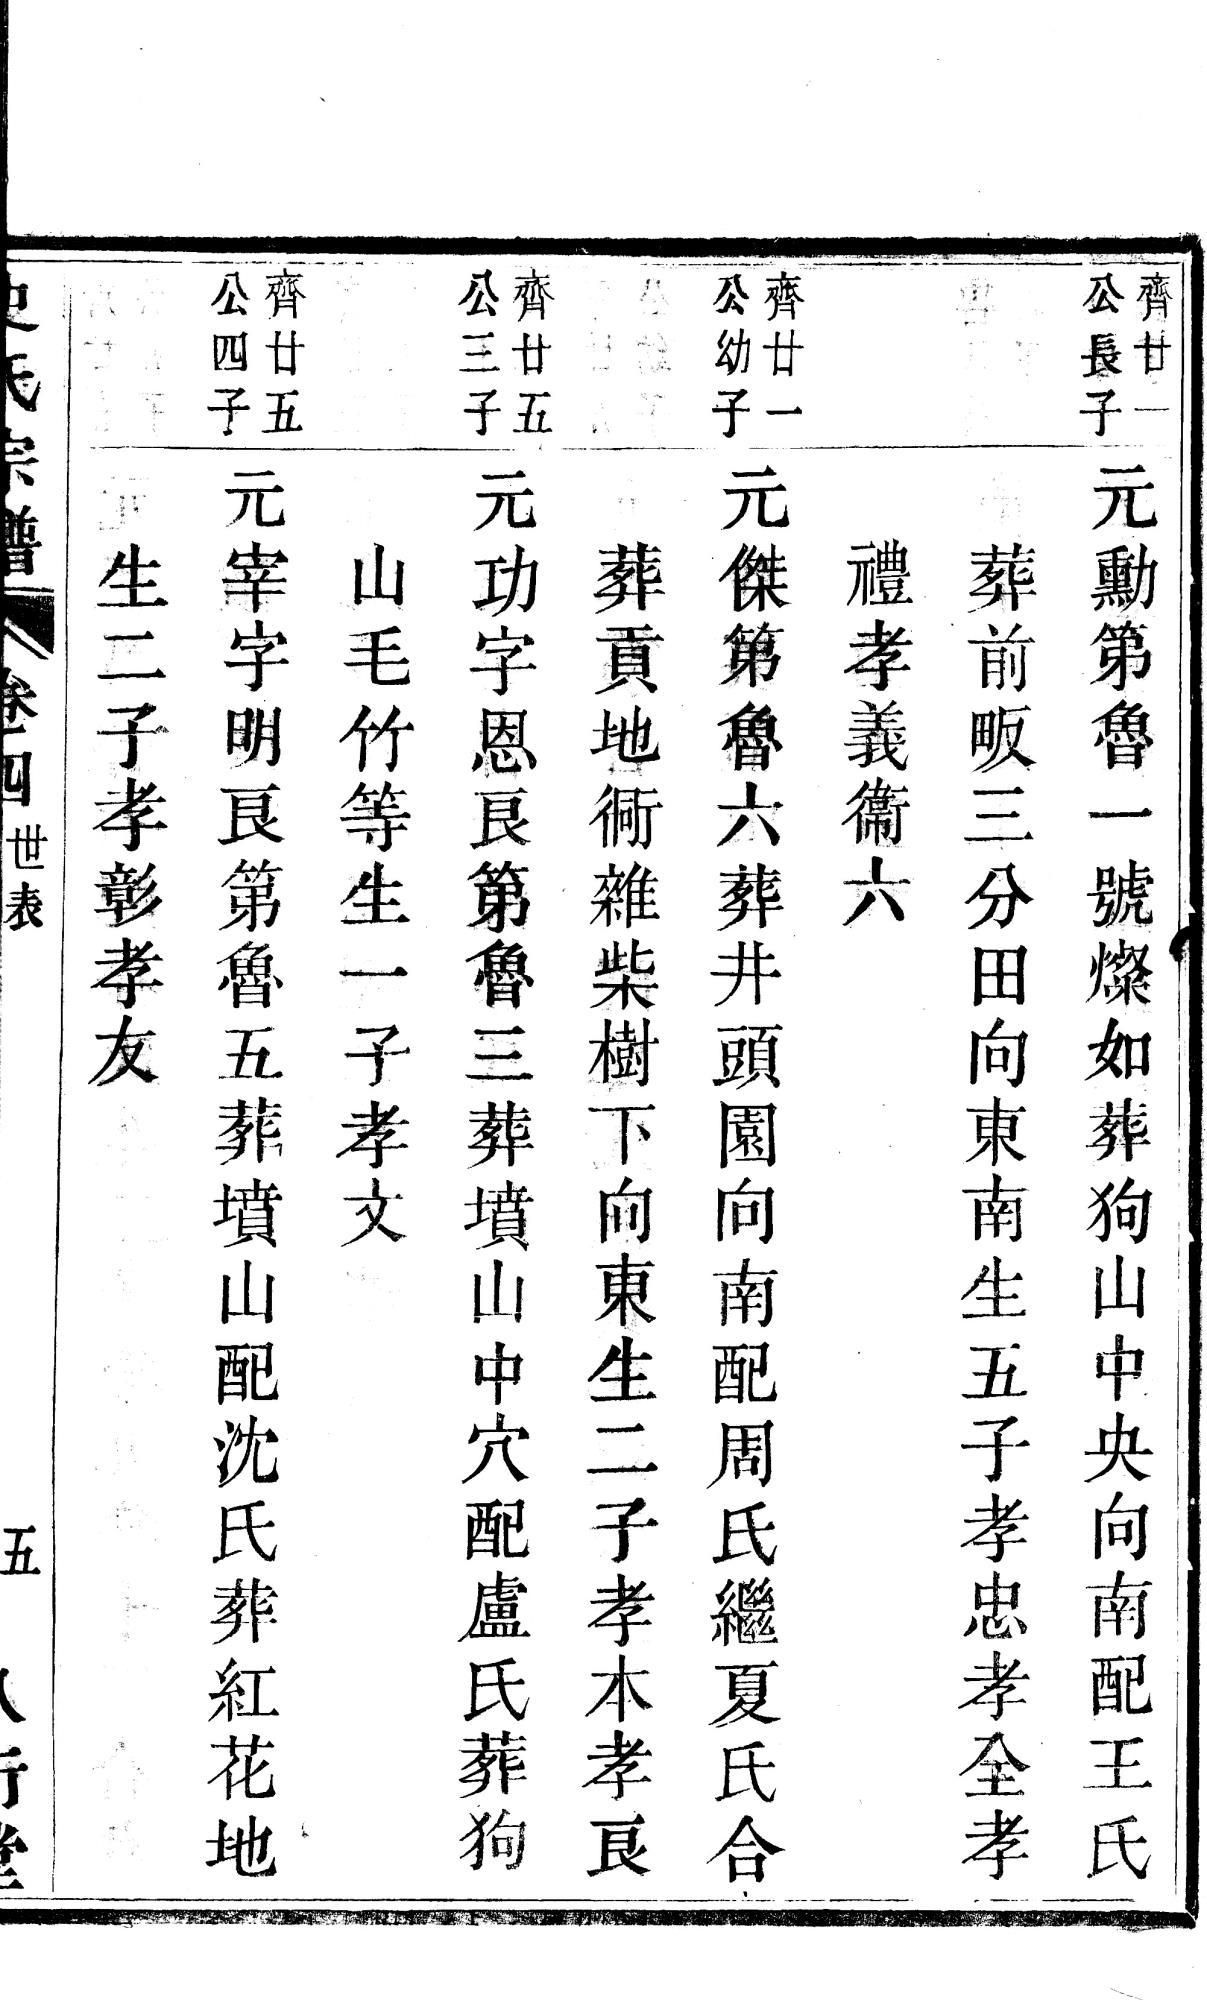 齊廿一
公長子
元勳第魯一號燦如葬狗山中央向南配王氏
葬前畈三分田向東南生五子孝忠孝全孝
禮孝義衞六
齊廿一
公幼子
元傑第魯六葬井頭園向南配周氏繼夏氏合
葬貢地衕雜柴樹下向東生二子孝本孝良
齊廿五
公三子
元功字恩良第魯三葬墳山中穴配盧氏葬狗
山毛竹等生一子孝文
齊廿五
公四子
元宰字明良第魯五葬墳山配沈氏葬紅花地
生二子孝彰孝友
史氏宗譜
卷四
世表
五
八行堂